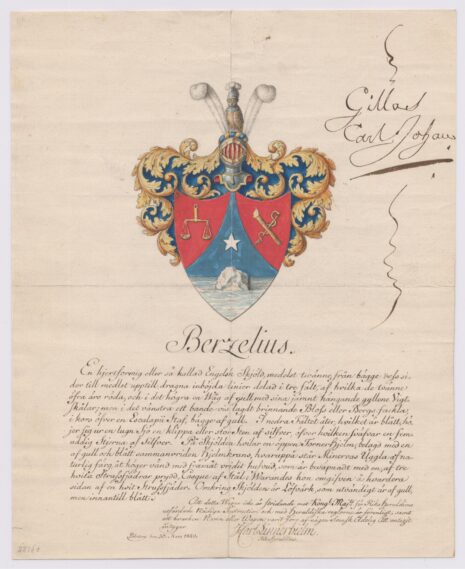 Gillas
Carl Johan
Berzelius.
En hjertformig eller så kallad Engelsk Sköld, medelst tvänne, från bägge öfre si-
der till medlet upptill dragna inböjda linier delad i tre fält, af hvilka de tvänne
öfra äro röda, och i det högra en Våg af gull med sina jemnt hängande gyllene Vigt-
skålar, men i det vänstra ett bande-vis lagdt brinnande Bloss eller Bergsfackla,
i kors öfver en Esculapii Staf, bägge af gull. I nedra fältet åter, hvilket är blått, hö-
jer sig ur en lugn Sjö en klippa eller stor Sten af silfver öfver hvilken sväfvar en sex-
uddig Stjerna af Silfver. På Skölden hvilar en öppen Tornerhjelm, belagd med en
af gull och blått sammanvriden Hjelmkrans, hvaruppå står Minervas Uggla af na-
turlig färg åt höger vänd med framåt vridit hufvud, som är bevapnadt med en, af tre
hvita Strutsfjädrar prydd, Casque af Stål,
sidan af en hvit Strutsfjäder. Omkring Skölden är Löfverk, som utvändigt är af gull,
men innantill blått.
Att detta Wapen icke är stridande mot Kongl. Maj:ts